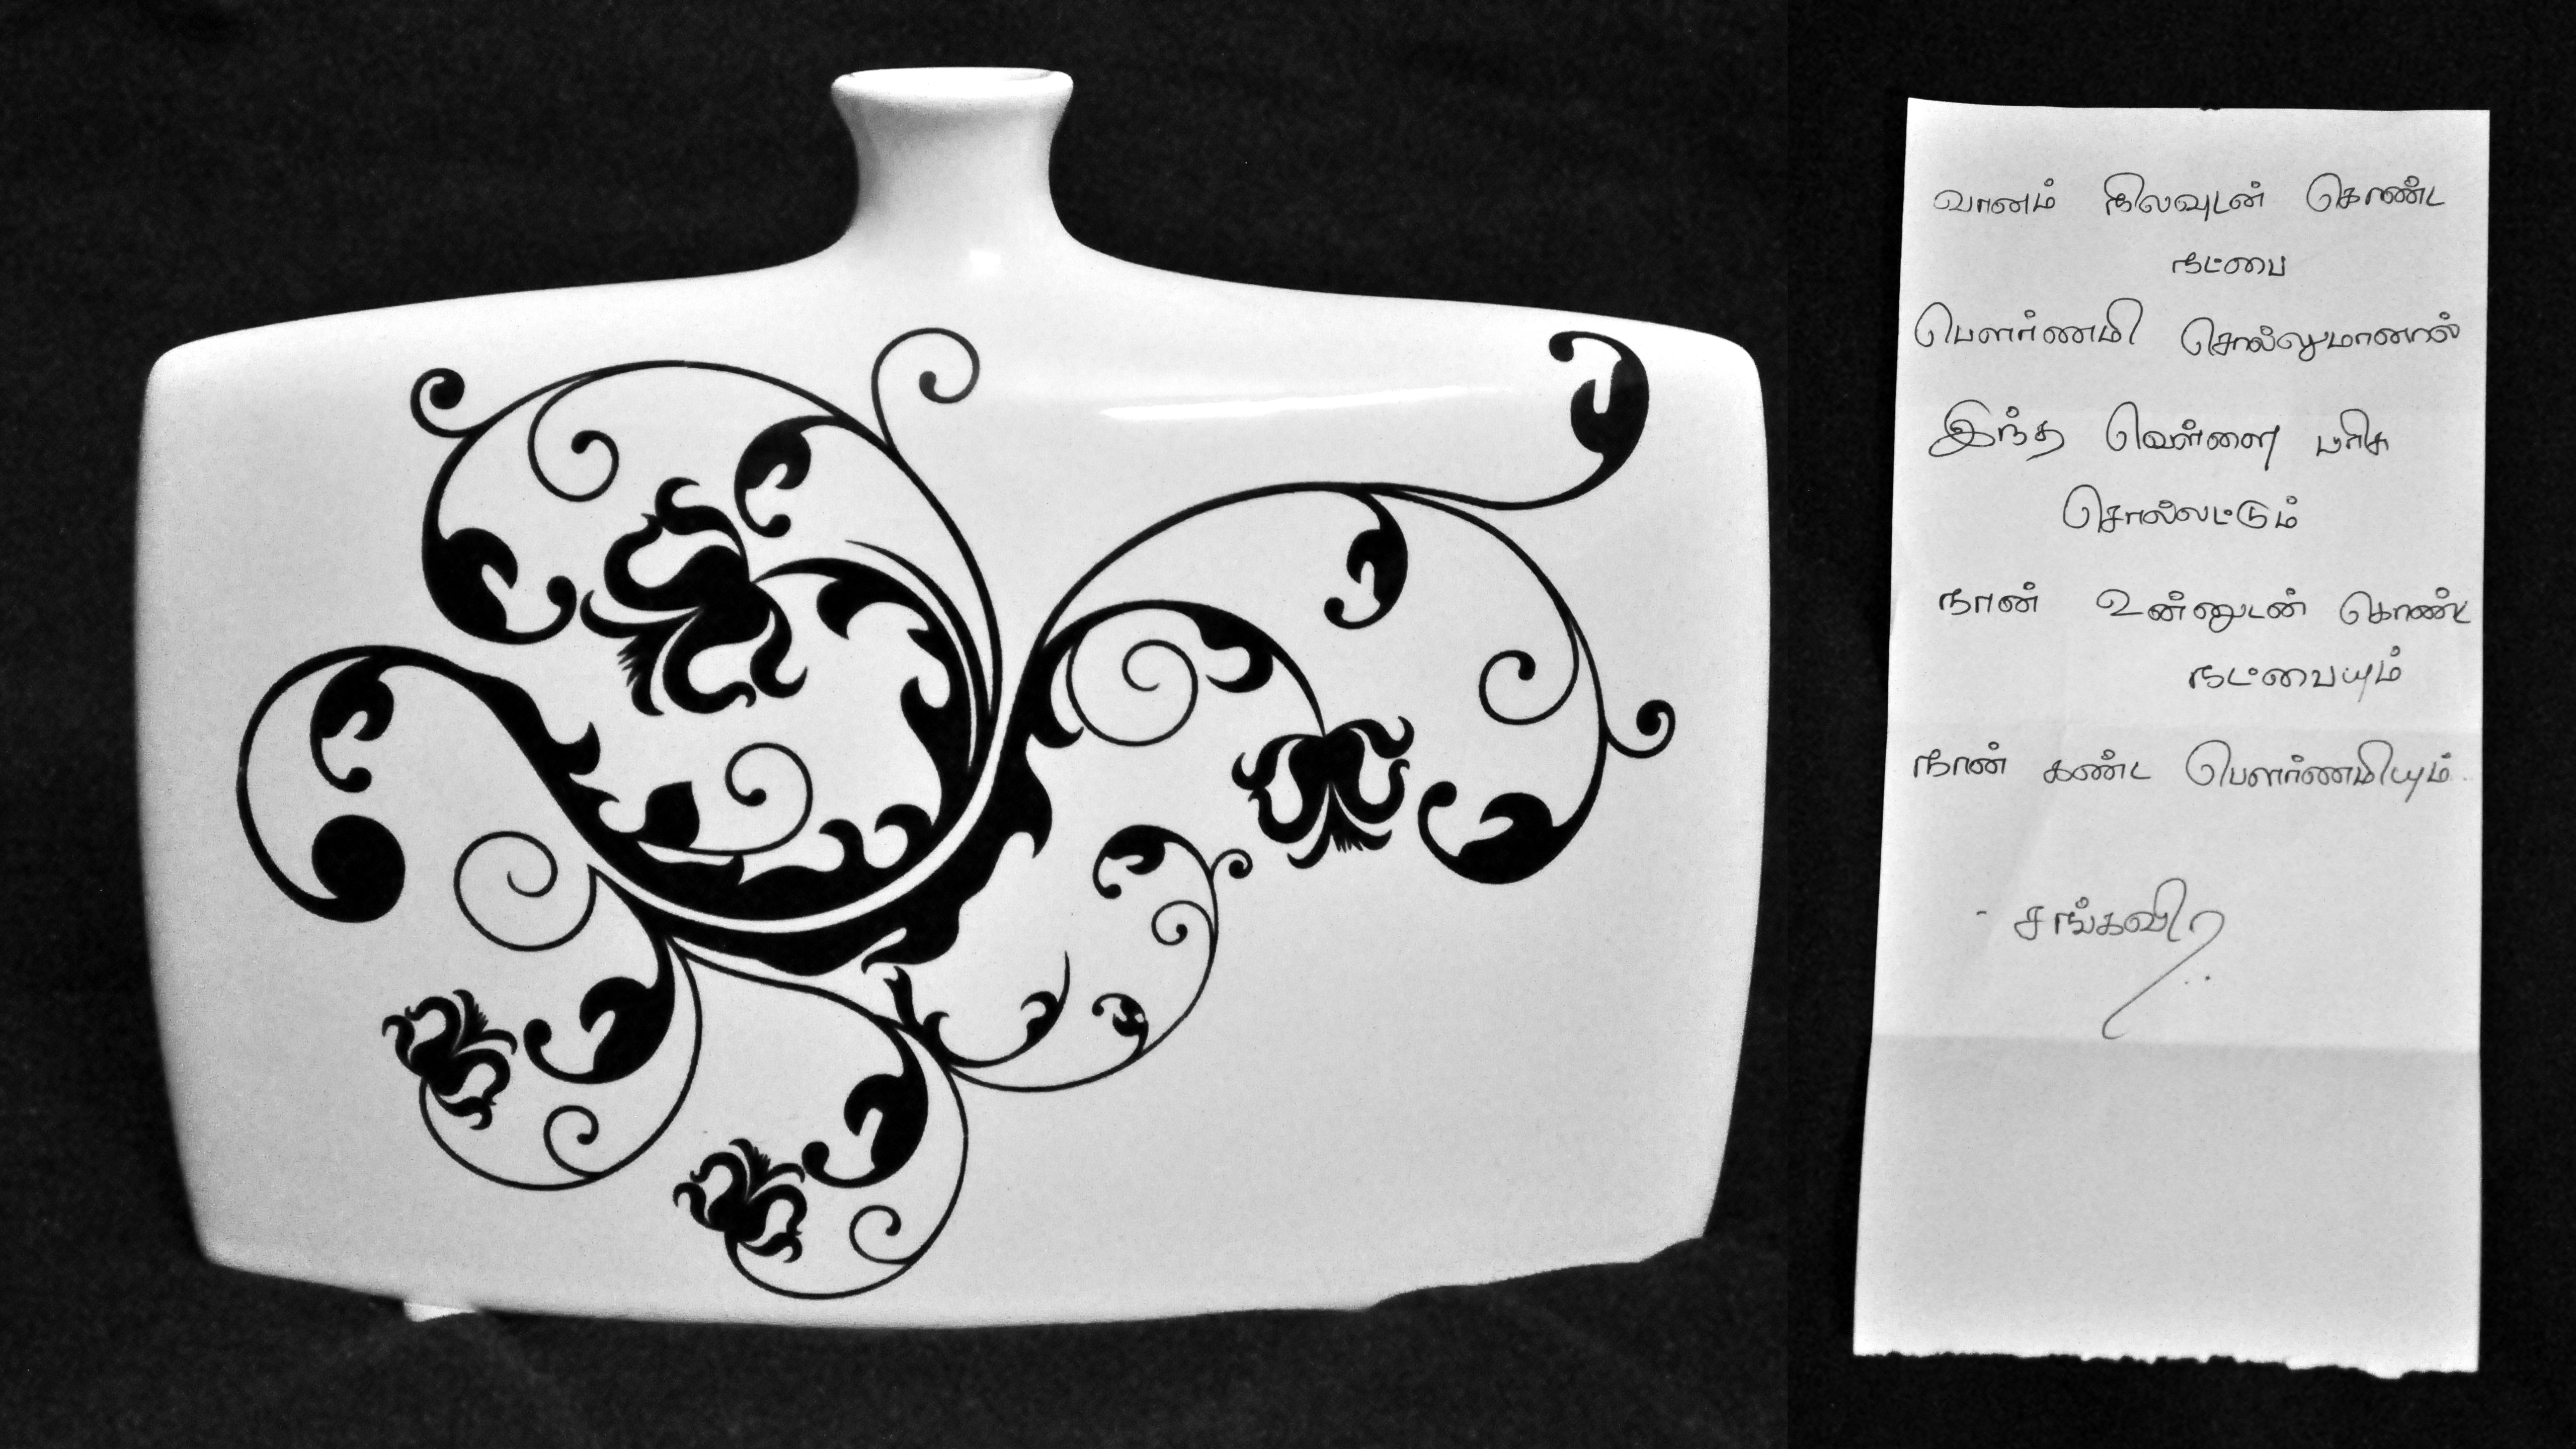 வானம் நிலவுடன் கொண்ட
நட்பை
பௌர்ணமி சொல்லுமானால்
இந்த வெள்ளை பரிசு
சொல்லட்டும்
நான் உன்னுடன் கொண்ட
நட்பையும்
நான் கண்ட பௌர்ணமியும்.